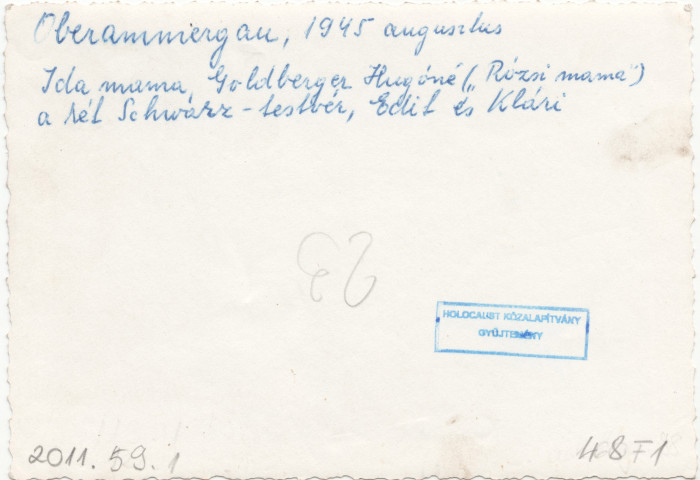 Oberammergau, 1945 augusztus
Ida mama, Goldberger Hugóné („Rózsi mama")
a két Schwarz-testvér, Edit és Klári
HOLOCAUST KÖZALAPÍTVÁNY
GYŰJTEMÉNY
2011. 59. 1
48F1